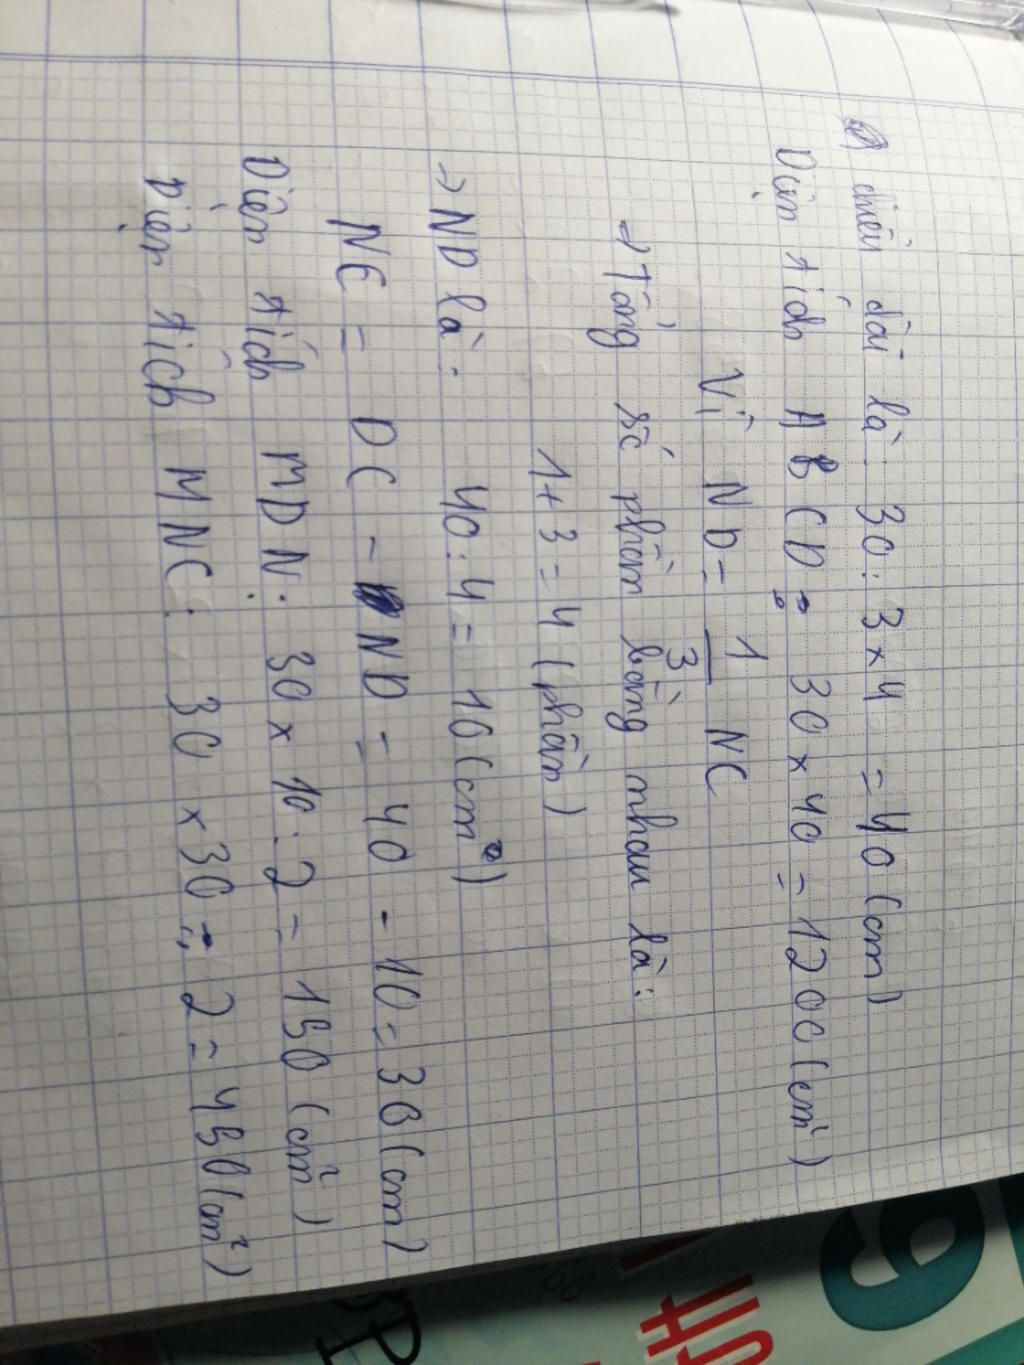 a) chiều dài là: 30 : 3 x 4 = 40 (cm)
Diện tích ABCD: 30 x 40 = 1200 (cm²)
Vì ND = 1/3 NC
→ Tổng số phần bằng nhau là:
1 + 3 = 4 (phần)
→ ND là: 40 : 4 = 10 (cm)
NC = DC - ND = 40 - 10 = 30 (cm)
Diện tích MDN: 30 x 10 : 2 = 150 (cm²)
Diện tích MNC: 30 x 30 : 2 = 450 (cm²)
9